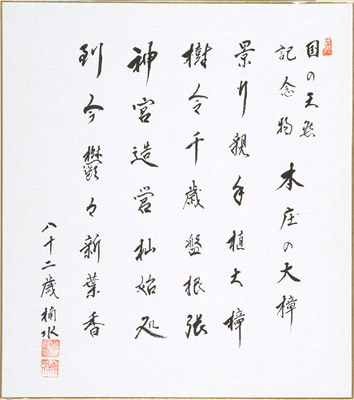 国の天然
記念物 本庄の大樟
景行親手植大樟
樹令千歳盤根張
神宮造営杣始処
到今欝々新葉香
八十二歳 楠水